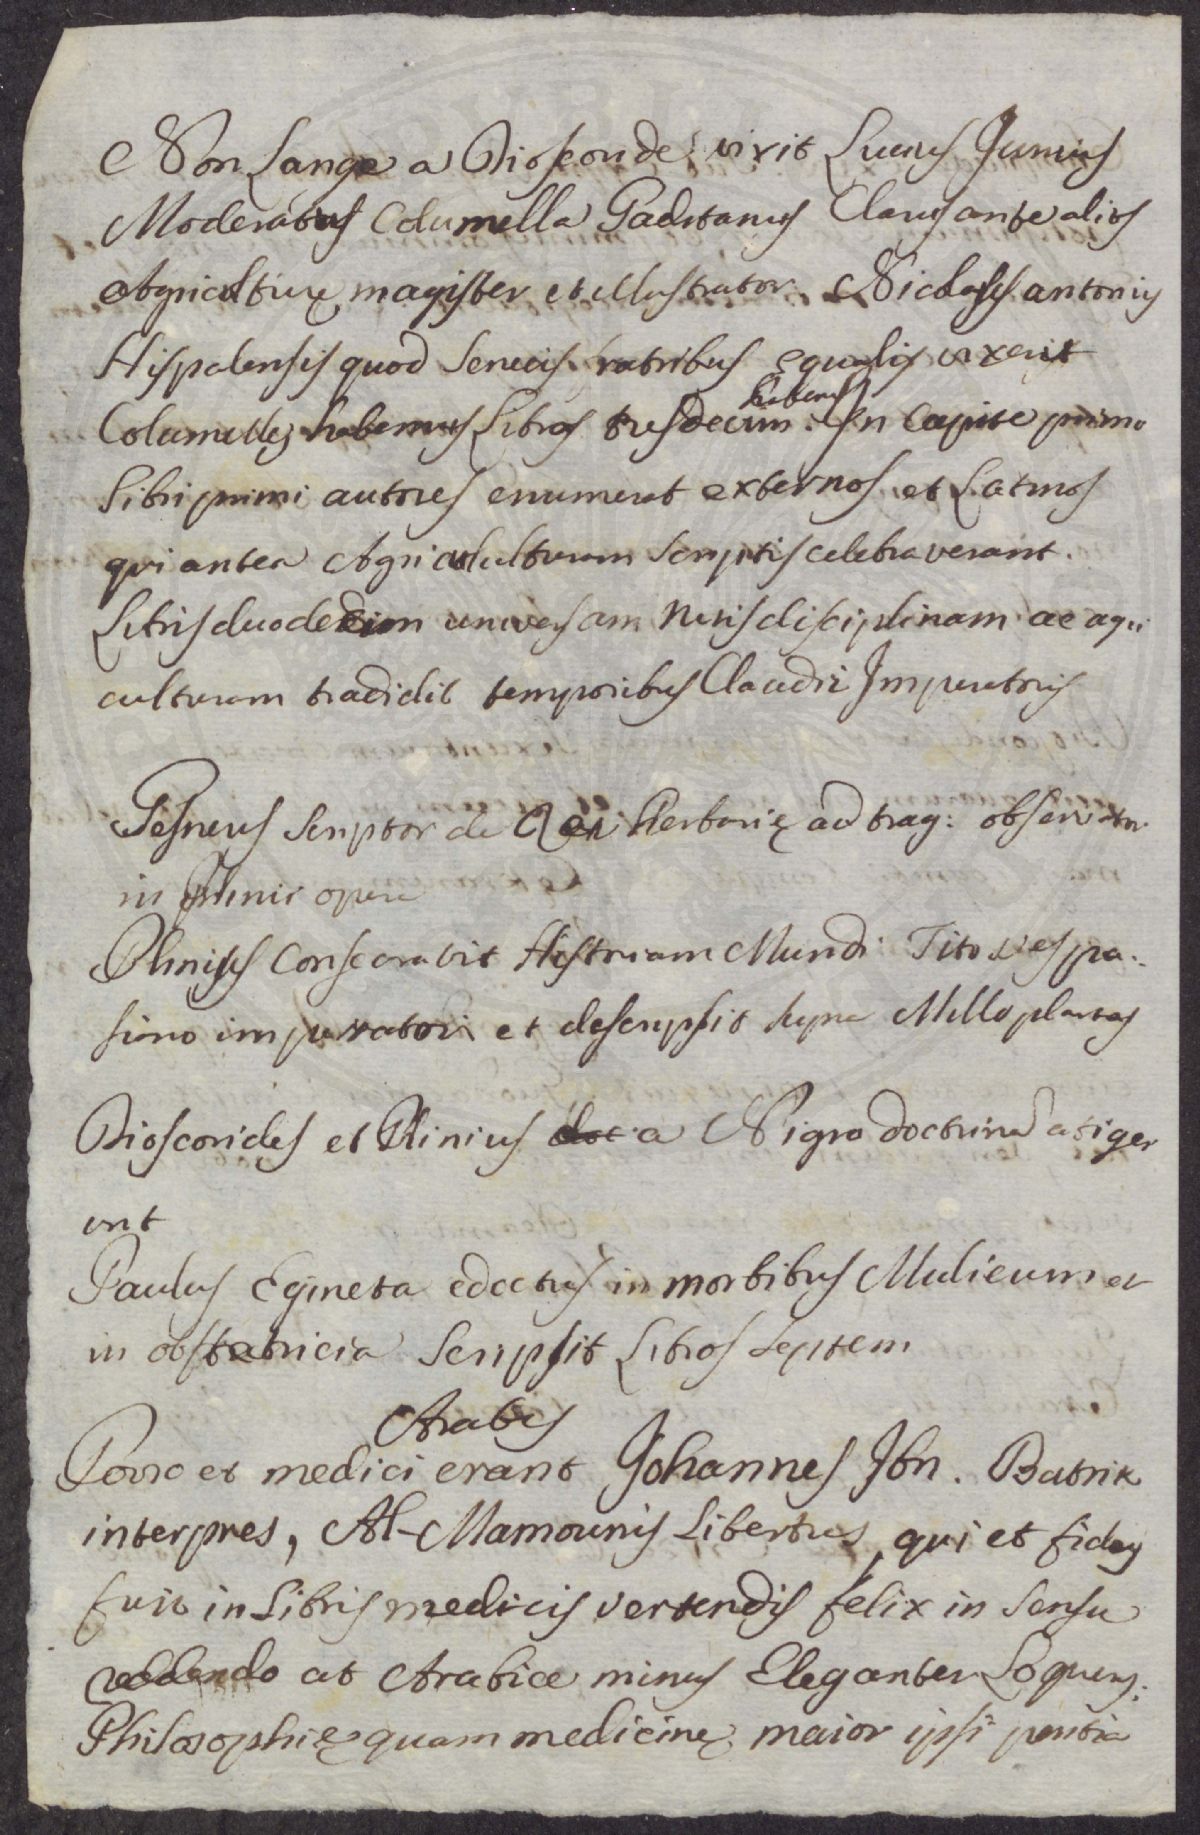 Non Lange a Dioscoride vixit Lucius Junius
Moderatus Columella Gaditanus Clarus ante alios
Agricolturę magister et illustrator. Nicolaus antonius
Hispalensis quod Senecis fratribus equalis vixerit
Columellę habemus Libros tresdecim habemus. In Capite primo
Libri primi autores enumerat externos et Latinos
qui antea Agriculturam Scriptis celebraverant.
Libris duodecim universam ruris disciplinam ac agri
culturam tradidit temporibus Claudii Imperatoris
Gesnerus Scriptor de Rei Herbarię ad trag: observator
in Plinii opera
Plinius Consecravit Histriam Mundi Tito vespa-
siano imperatori et descripsit supra Mille plantas
Dioscorides et Plinius a Nigro doctrina atiger
unt
Paulus Egineta edoctus in morbibus Mulierum et
in obstatricia Scripsit Libros Septem
Arabes
Porro et medici erant Johannes Ibn. Batrik
interpres, Al-Mamounis Libertus, qui et fidus
fuit in Libris medicis vertendis felix in Sensu
reddendo at Arabice minus Eleganter Loquens.
Philosophię quam medicinę maior ipsi peritia